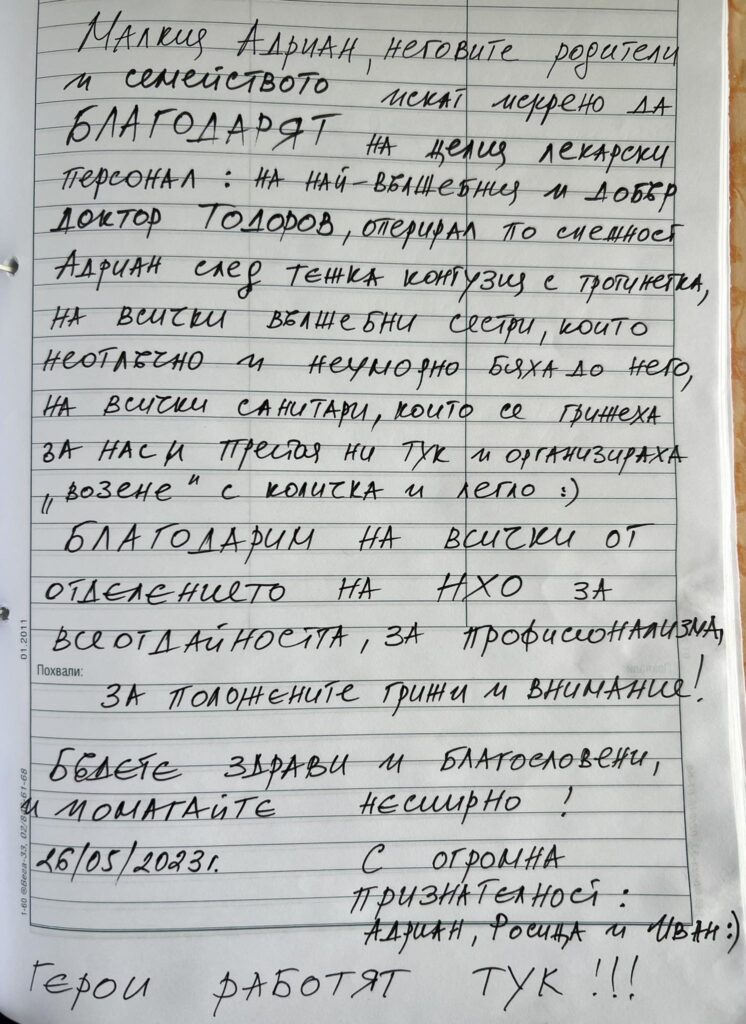 Малкия Адриан, неговите родители
и семейството искат искрено да
БЛАГОДАРЯТ на целия лекарски
персонал : на най-вълшебния и добър
доктор Тодоров, оперирал по спешност
Адриан след тежка контузия с тротинетка,
на всички вълшебни сестри, които
неотлъчно и неуморно бяха до него,
на всички санитари, които се грижеха
за нас и престоя ни тук и организираха
„возене" с количка и легло :)
БЛАГОДАРИМ на всички от
отделението на НХО за
всеотдайността, за професионализма,
Похвали:
за положените грижи и внимание!
Бъдете здрави и благословени,
и помагайте неспирно !
26/05/2023г. С огромна
признателност :
Адриан, Росица и Иван :)
Герои работят ТУК !!!
01.2011